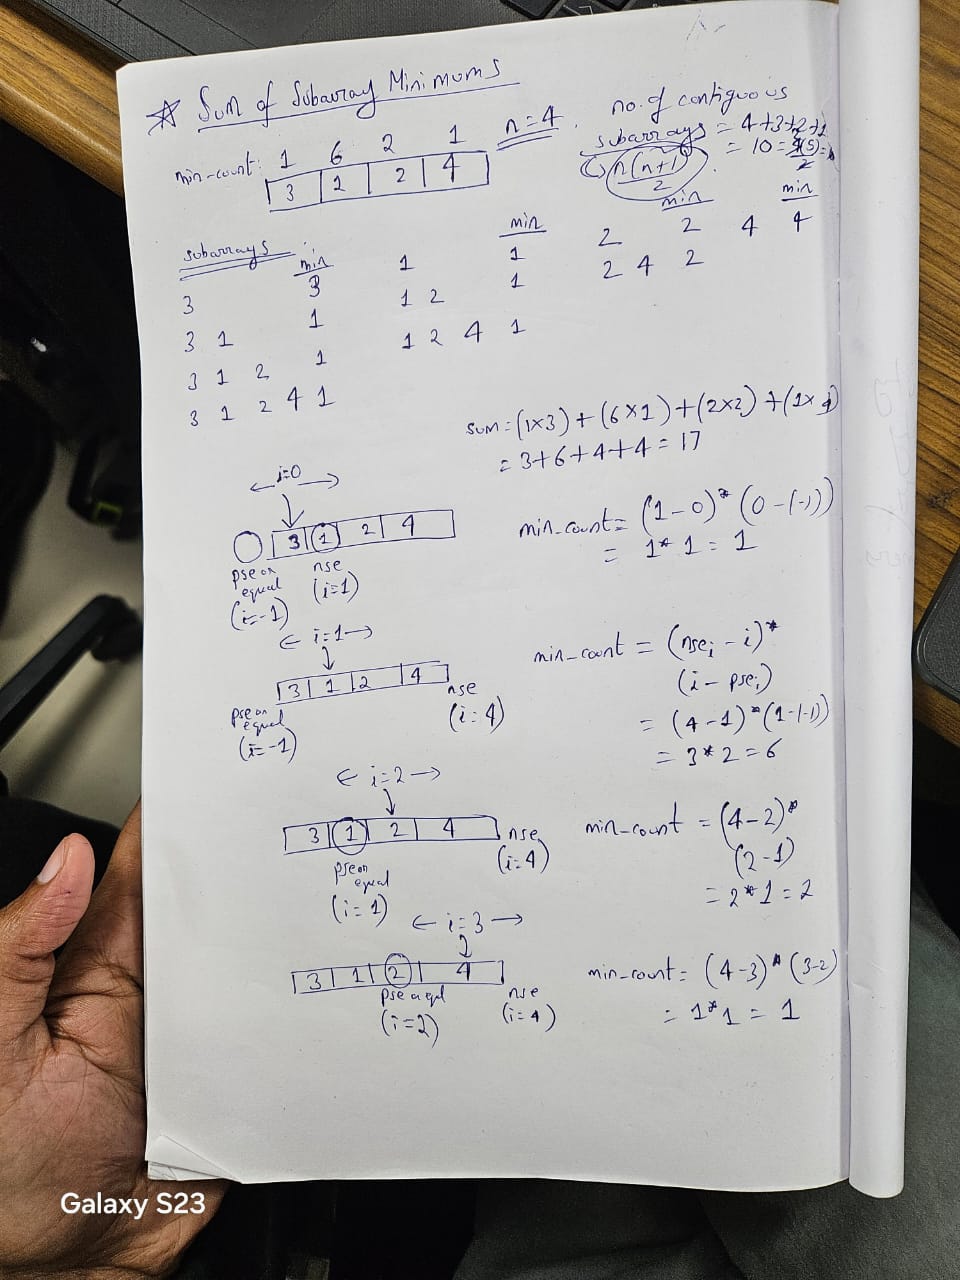 ☆ Sum of Subarray Minimums
min-count: 1 6 2 1 n=4
3 1 2 4
no. of contiguous
subarrays = 4+3+2+1
= 10 = 4(5)/2
n(n+1)/2
subarrays min
3 3
3 1 1
3 1 2 1
3 1 2 4 1
min
1 1
1 2 1
1 2 4 1
min
2 2
2 4 2
min
4 4
sum = (1x3) + (6x1) + (2x2) + (1x4)
= 3+6+4+4 = 17
← i=0 →
3 1 2 4
pse or equal (i=-1)
nse (i=1)
min-count = (1-0)* (0-(-1))
= 1*1 = 1
← i=1 →
3 1 2 4
pse or equal (i=-1)
nse (i=4)
min-count = (nseᵢ - i)*
(i - pseᵢ)
= (4-1)*(1-(-1))
= 3*2 = 6
← i=2 →
3 1 2 4
pse or equal (i=1)
nse (i=4)
min-count = (4-2)*
(2-1)
= 2*1 = 2
← i=3 →
3 1 2 4
pse or eql (i=2)
nse (i=4)
min-count = (4-3)* (3-2)
= 1*1 = 1
Galaxy S23